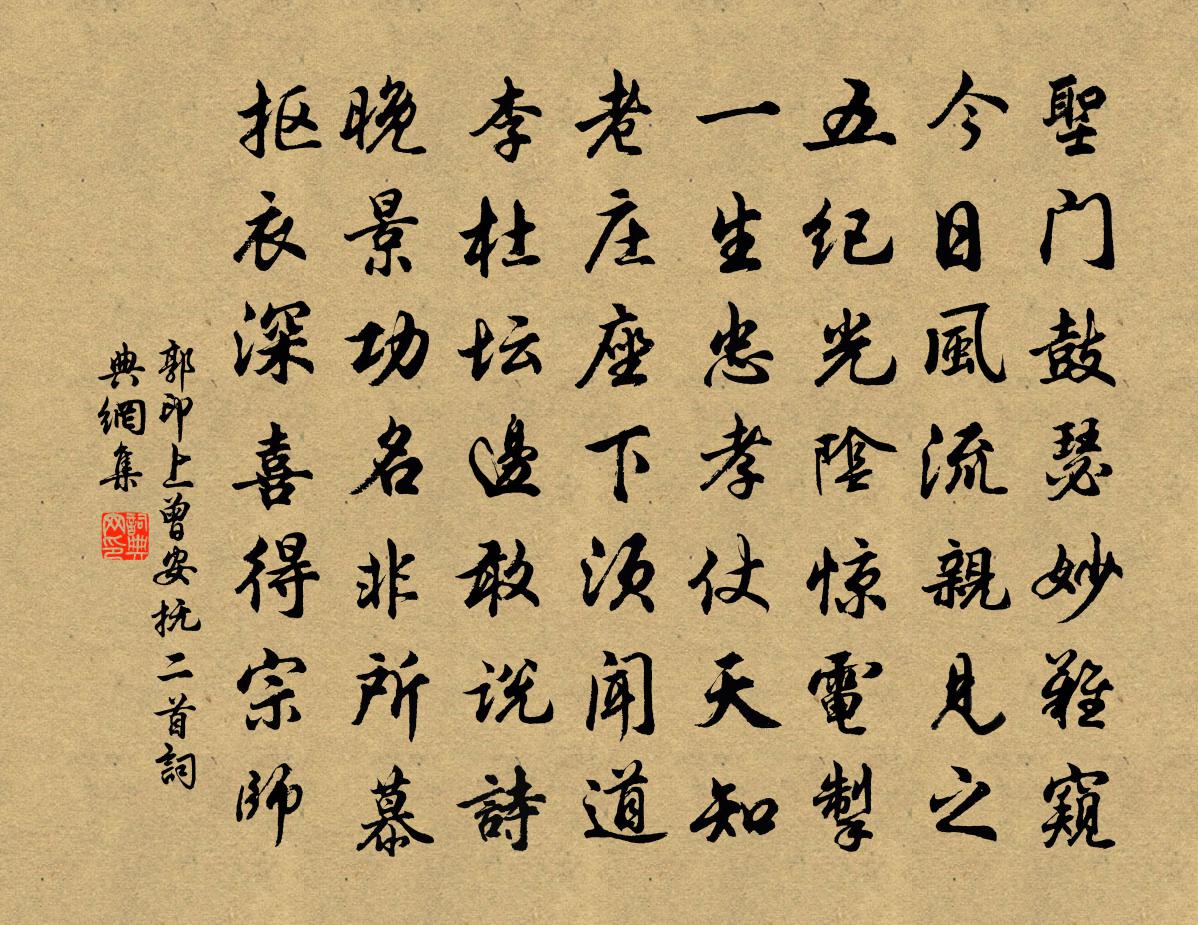 聖门鼓瑟妙難窺
今日風流親見之
五纪光陰惊電掣
一生忠孝仗天知
老庄座下须闻道
李杜坛邊敢说詩
晚景功名非所慕
抠衣深喜得宗師
郭印上曾安抚二首詞
典網集
詞典
网印